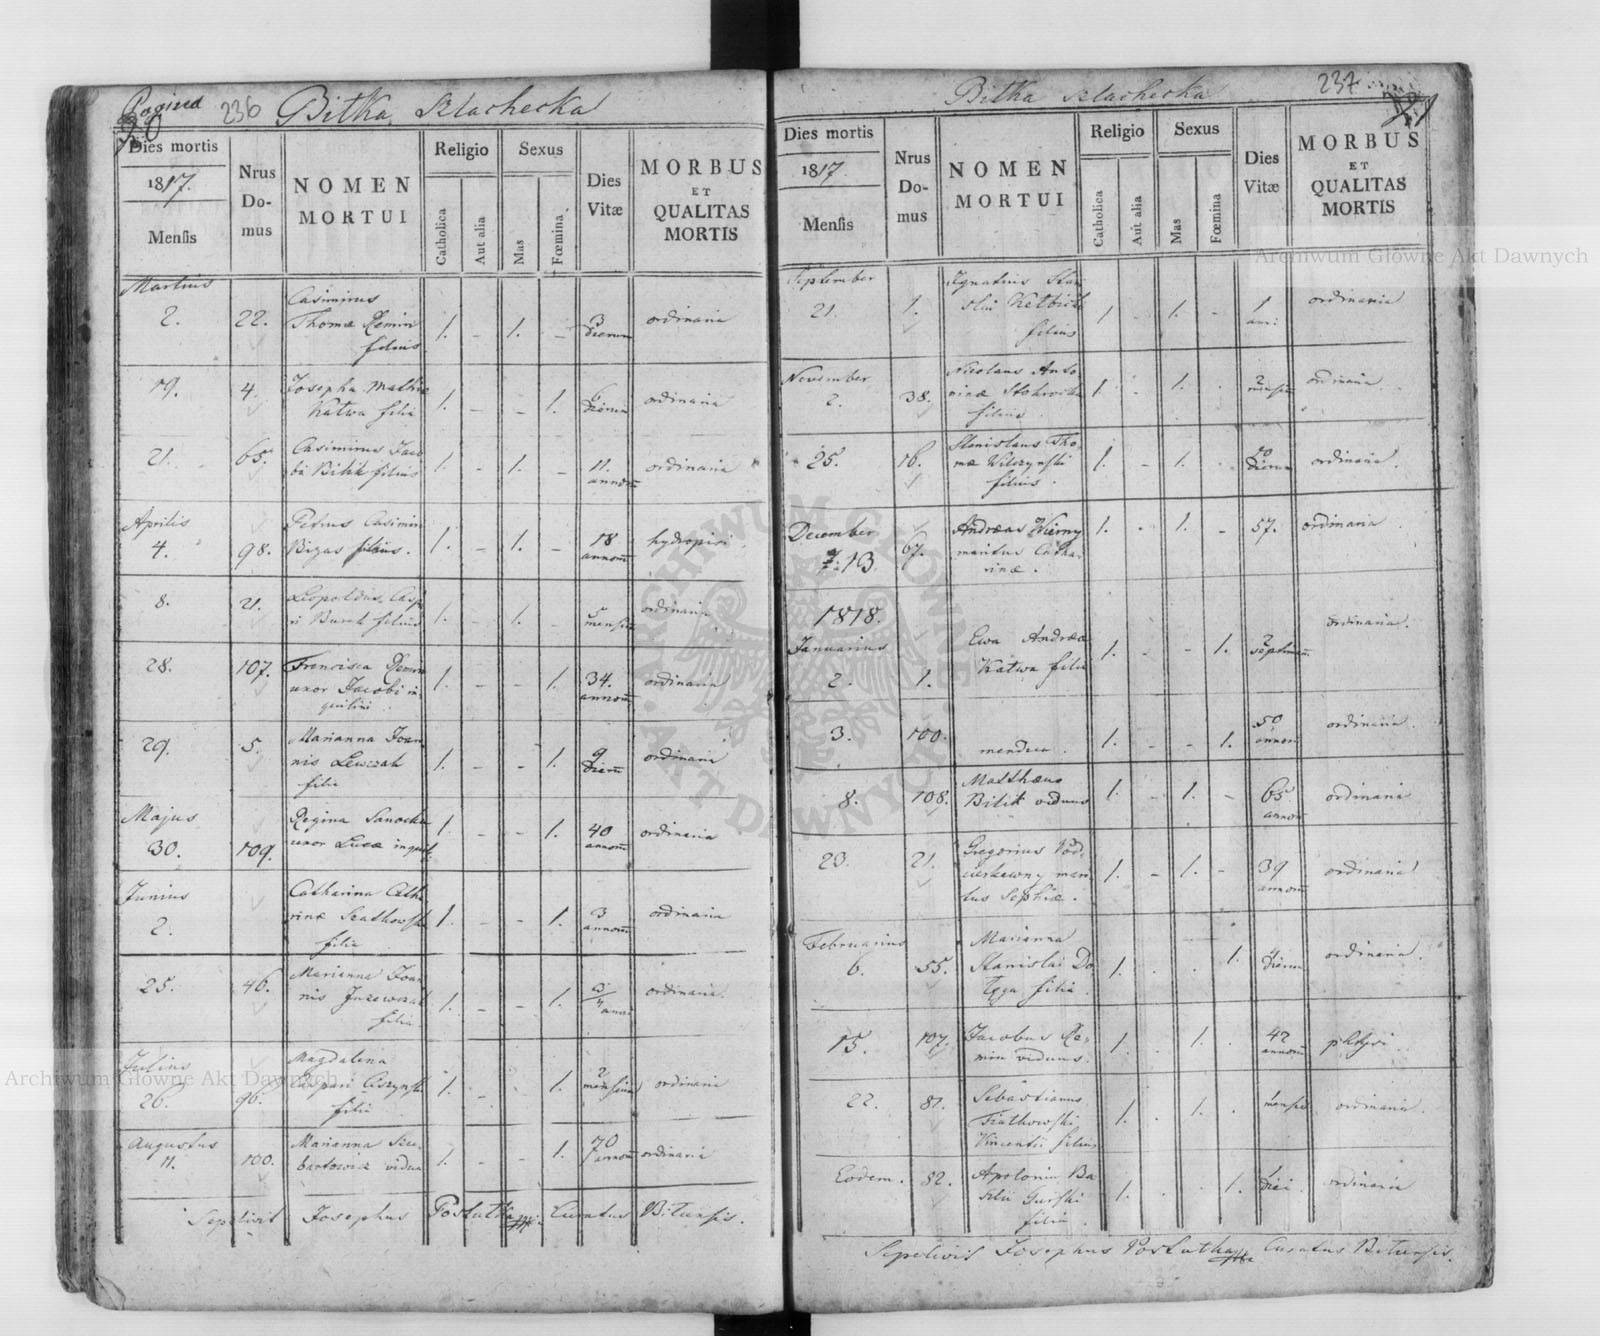 Pagina 236 Bitka Szlachecka
Dies mortis
1817.
Mensis
Nrus Domus
NOMEN MORTUI
Religio
Catholica
Aut alia
Sexus
Mas
Fœmina
Dies Vitæ
MORBUS ET QUALITAS MORTIS
Martius
2. 22. Casimirus
Thomæ Remin
filius 1. - 1. - 3 dierum ordinaria
19. 4. Josepha Mathiæ
Katwa filia 1. - - 1. 6 dierum ordinaria
21. 65. Casimirus Jaco
bi Bilik filius 1. - 1. - 11. annorum ordinaria
Aprilis
4. 98. Petrus Casimiri
Bizas filius. 1. - 1. - 18 annorum hydropisi
8. 21. Leopoldus
Burek filius 1. - 1. 5 mensium ordinaria
28. 107. Francisca Remin
uxor Jacobi in
quilini 1. - - 1. 34. annorum ordinaria
29. 5. Marianna Joan
nis Lewczak
filia 1. - - 1. 9 dierum ordinaria
Majus
30. 109. Regina Sanocka
uxor Lucæ inquil. 1. - - 1. 40 annorum ordinaria
Junius
2. Catharina Catha
rinæ Szatkowska
filia 1. - - 1. 3 annorum ordinaria
25. 46. Marianna Joan
nis Juzewczak
filia 1. - - 1. 3/4 anni ordinaria.
Julius
26. 96. Magdalena
Caspari
filia 1. - - 1. 2 mensium ordinaria
Augustus
11. 100. Marianna Szu
bartowicz vidua 1. - - 1. 70 annorum ordinaria
Sepelivit Josephus Postutka Curatus Bitensis.
Bitka Szlachecka 237
Dies mortis
1817.
Mensis
Nrus Domus
NOMEN MORTUI
Religio
Catholica
Aut alia
Sexus
Mas
Fœmina
Dies Vitæ
MORBUS ET QUALITAS MORTIS
September
21. 1. Ignatius Stani
slai
filius 1 - 1. - 1 anni ordinaria
November
2. 38. Nicolaus Anto
ninæ
filius 1. - 1. . 2 mensium ordinaria
25. 16. Stanislaus Tho
mæ Wilczynski
filius. 1. - 1. - 10 dierum ordinaria.
December
13. 67. Andreas Wierny
maritus Catha
rinæ. 1. - 1. - 57. ordinaria
1818.
Januarius
2. 1. Ewa Andreæ
Katwa filia 1. - - 1. 2 septiman. ordinaria.
3. 100. mendica. 1. - - 1. 50 annorum ordinaria.
8. 108. Matthæus
Bilik viduus 1. - 1. - 65 annorum ordinaria
23. 21. Gregorius Pod
wierzewny mari
tus Sophiæ. 1. - 1. - 39 annorum ordinaria
Februarius
6. 55. Marianna
Stanislai Do
łęga filia 1. . . 1. 4 dierum ordinaria.
15. 107. Jacobus Re
min viduus. 1. . 1. . 42 annorum phtysi
22. 81. Sebastianus
Fiałkowski
Vincentii filius 1. . 1. . 1 mensis. ordinaria.
Eodem. 82. Apolonia Ba
silii Gurski
filia 1. . . 1. 1 diei. ordinaria
Sepelivit Josephus Postutka Curatus Bitensis.
Archiwum Główne Akt Dawnych
Archiwum Główne Akt Dawnych
ARCHIWUM GŁÓWNE AKT DAWNYCH